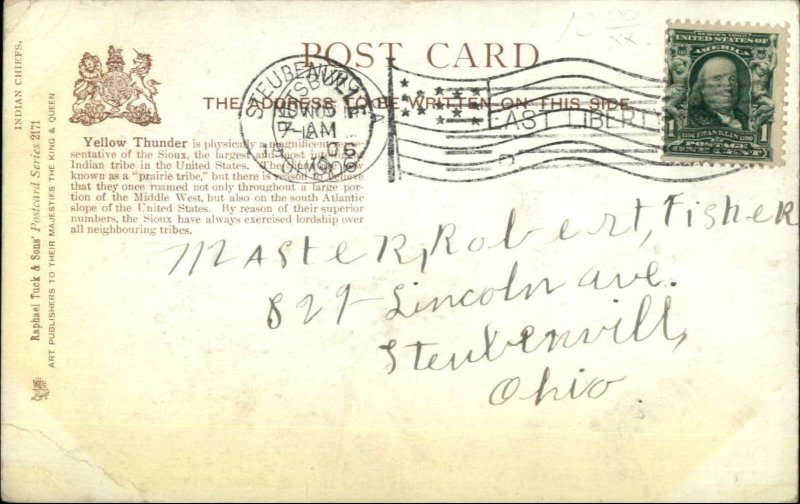 INDIAN CHIEFS.
Raphael Tuck & Sons' Postcard Series 2171
ART PUBLISHERS TO THEIR MAJESTIES THE KING & QUEEN
POST CARD
THE ADDRESS TO BE WRITTEN ON THIS SIDE
Yellow Thunder is physically a magnificent
sentative of the Sioux, the largest and most
Indian tribe in the United States.
known as a "prairie tribe," but there is reason to believe
that they once roamed not only throughout a large por-
tion of the Middle West, but also on the south Atlantic
slope of the United States. By reason of their superior
numbers, the Sioux have always exercised lordship over
all neighbouring tribes.
STEUBENVILLE
7-AM
EAST LIBERTY
UNITED STATES OF
AMERICA
1
1
FRANKLIN
POSTAGE
Master, Robert, Fisher
829 Lincoln ave.
Steubenvill,
Ohio